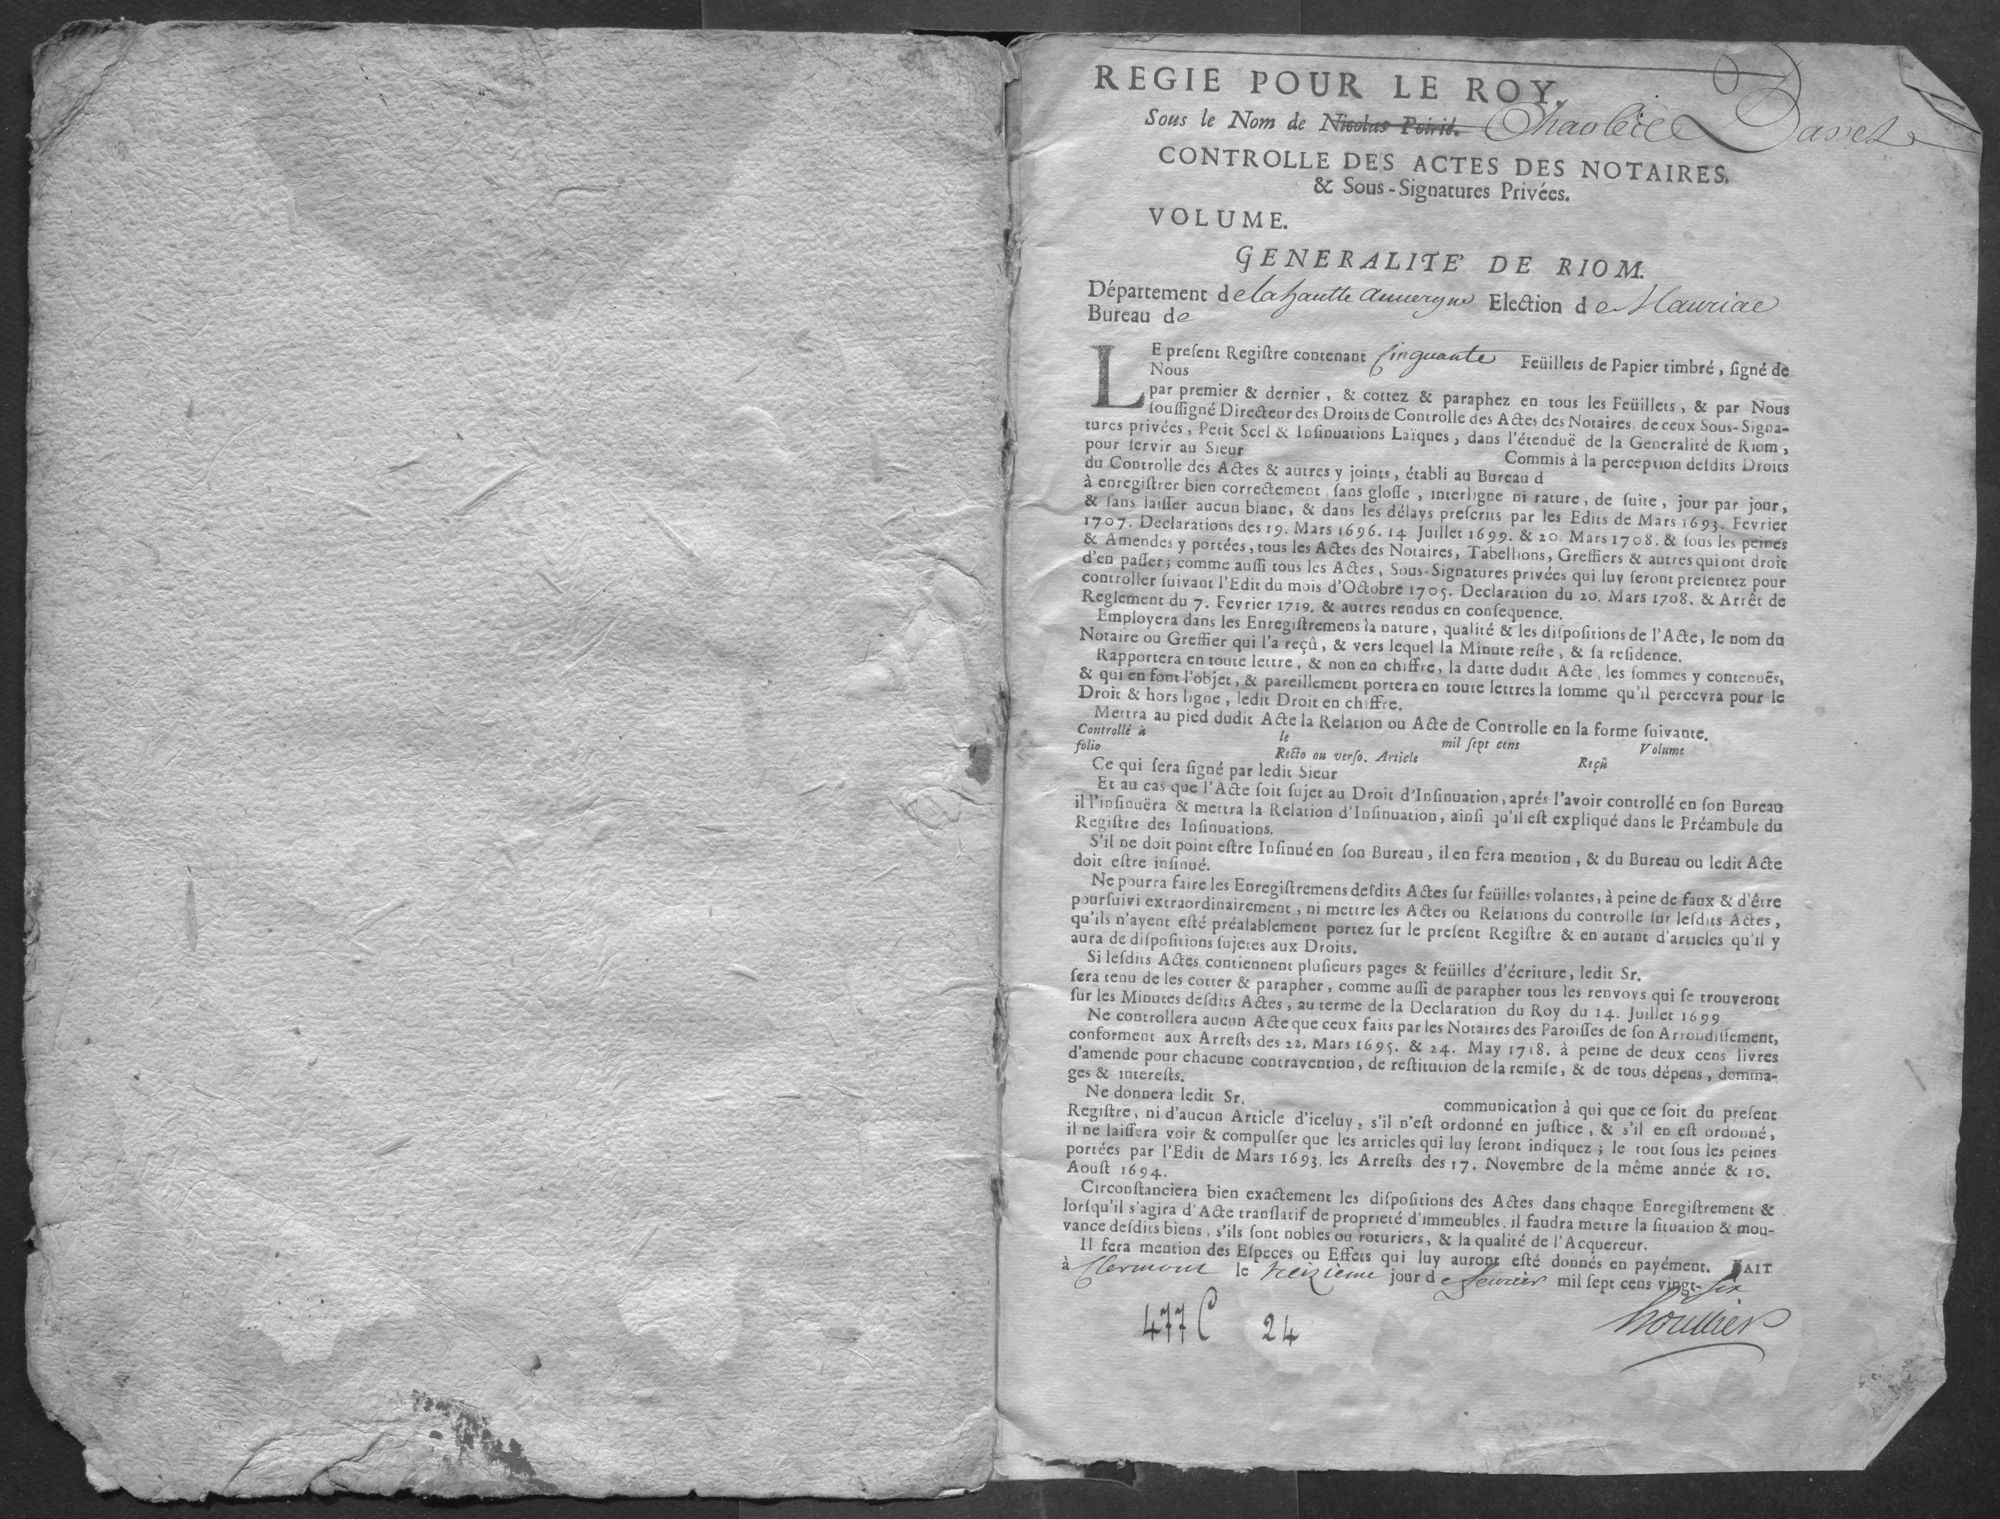 REGIE POUR LE ROY.
Sous le Nom de Nicolas Poirié. Charles
CONTROLLE DES ACTES DES NOTAIRES.
& Sous-Signatures Privées.
VOLUME.
GENERALITE' DE RIOM.
Département de la haulte auuergne Election de Mauriac
Bureau de
LE preſent Regiſtre contenant Cinquante Feüillets de Papier timbré, ſigné de
Nous
par premier & dernier, & cottez & paraphez en tous les Feüillets, & par Nous
ſouſſigné Directeur des Droits de Controlle des Actes des Notaires, de ceux Sous-Signa-
tures privées, Petit Scel & Inſinuations Laïques, dans l'étenduë de la Generalité de Riom,
pour ſervir au Sieur Commis à la perception deſdits Droits
du Controlle des Actes & autres y joints, établi au Bureau d
à enregiſtrer bien correctement, ſans gloſſe, interligne ni rature, de ſuite, jour par jour,
& ſans laiſſer aucun blanc, & dans les délays preſcrits par les Edits de Mars 1693. Fevrier
1707. Declarations des 19. Mars 1696. 14. Juillet 1699. & 20. Mars 1708. & ſous les peines
& Amendes y portées, tous les Actes des Notaires, Tabellions, Greffiers & autres qui ont droit
d'en paſſer; comme auſſi tous les Actes, Sous-Signatures privées qui luy ſeront preſentez pour
controller ſuivant l'Edit du mois d'Octobre 1705. Declaration du 20. Mars 1708. & Arrêt de
Reglement du 7. Fevrier 1719. & autres rendus en conſequence.
Employera dans les Enregiſtremens la nature, qualité & les diſpoſitions de l'Acte, le nom du
Notaire ou Greffier qui l'a reçû, & vers lequel la Minute reſte, & ſa reſidence.
Rapportera en toute lettre, & non en chiffre, la datte dudit Acte, les ſommes y contenuës,
& qui en font l'objet, & pareillement portera en toute lettres la ſomme qu'il percevra pour le
Droit & hors ligne, ledit Droit en chiffre.
Mettra au pied dudit Acte la Relation ou Acte de Controlle en la forme ſuivante.
Controllé à le mil ſept cens Volume
folio Recto ou verſo. Article Reçû
Ce qui ſera ſigné par ledit Sieur
Et au cas que l'Acte ſoit ſujet au Droit d'Inſinuation, aprés l'avoir controllé en ſon Bureau
il l'inſinuëra & mettra la Relation d'Inſinuation, ainſi qu'il eſt expliqué dans le Préambule du
Regiſtre des Inſinuations.
S'il ne doit point eſtre Inſinué en ſon Bureau, il en fera mention, & du Bureau ou ledit Acte
doit eſtre inſinué.
Ne pourra faire les Enregiſtremens deſdits Actes ſur feüilles volantes, à peine de faux & d'être
pourſuivi extraordinairement, ni mettre les Actes ou Relations du controlle ſur leſdits Actes,
qu'ils n'ayent eſté préalablement portez ſur le preſent Regiſtre & en autant d'articles qu'il y
aura de diſpoſitions ſujetes aux Droits.
Si leſdits Actes contiennent pluſieurs pages & feüilles d'écriture, ledit Sr.
ſera tenu de les cotter & parapher, comme auſſi de parapher tous les renvoys qui ſe trouveront
ſur les Minutes deſdits Actes, au terme de la Declaration du Roy du 14. Juillet 1699.
Ne controllera aucun Acte que ceux faits par les Notaires des Paroiſſes de ſon Arrondiſſement,
conforment aux Arreſts des 22. Mars 1695. & 24. May 1718. à peine de deux cens livres
d'amende pour chacune contravention, de reſtitution de la remiſe, & de tous dépens, domma-
ges & intereſts.
Ne donnera ledit Sr. communication à qui que ce ſoit du preſent
Regiſtre, ni d'aucun Article d'iceluy, s'il n'eſt ordonné en juſtice, & s'il en eſt ordonné,
il ne laiſſera voir & compulſer que les articles qui luy ſeront indiquez; le tout ſous les peines
portées par l'Edit de Mars 1693. les Arreſts des 17. Novembre de la même année & 10.
Aouſt 1694.
Circonſtanciera bien exactement les diſpoſitions des Actes dans chaque Enregiſtrement &
lorſqu'il s'agira d'Acte tranſlatif de proprieté d'immeubles, il faudra mettre la ſituation & mou-
vance deſdits biens, s'ils ſont nobles ou roturiers, & la qualité de l'Acquereur.
Il fera mention des Eſpeces ou Effets qui luy auront eſté donnés en payément. FAIT
à Clermont le treizieme jour de feurier mil ſept cens vingt-six
477 C 24